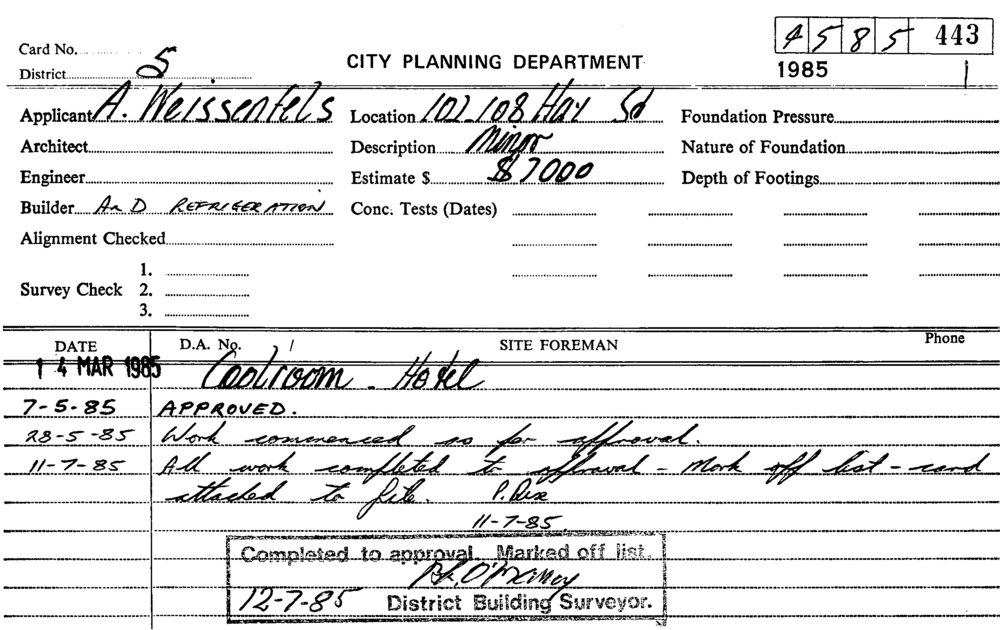 Card No. 4585 443
District 5 CITY PLANNING DEPARTMENT 1985 1
Applicant A. Weissenfels Location 102-108 Hay St Foundation Pressure
Architect Description Minor Nature of Foundation
Engineer Estimate $ $7000 Depth of Footings
Builder A & D REFRIGERATION Conc. Tests (Dates)
Alignment Checked
1.
Survey Check 2.
3.
DATE D.A. No. / SITE FOREMAN Phone
14 MAR 1985 Coolroom - Hotel
7-5-85 APPROVED.
28-5-85 Work commenced as per approval.
11-7-85 All work completed to approval - Mark off list - card
attached to file. P.
11-7-85
Completed to approval. Marked off list.
12-7-85 District Building Surveyor.